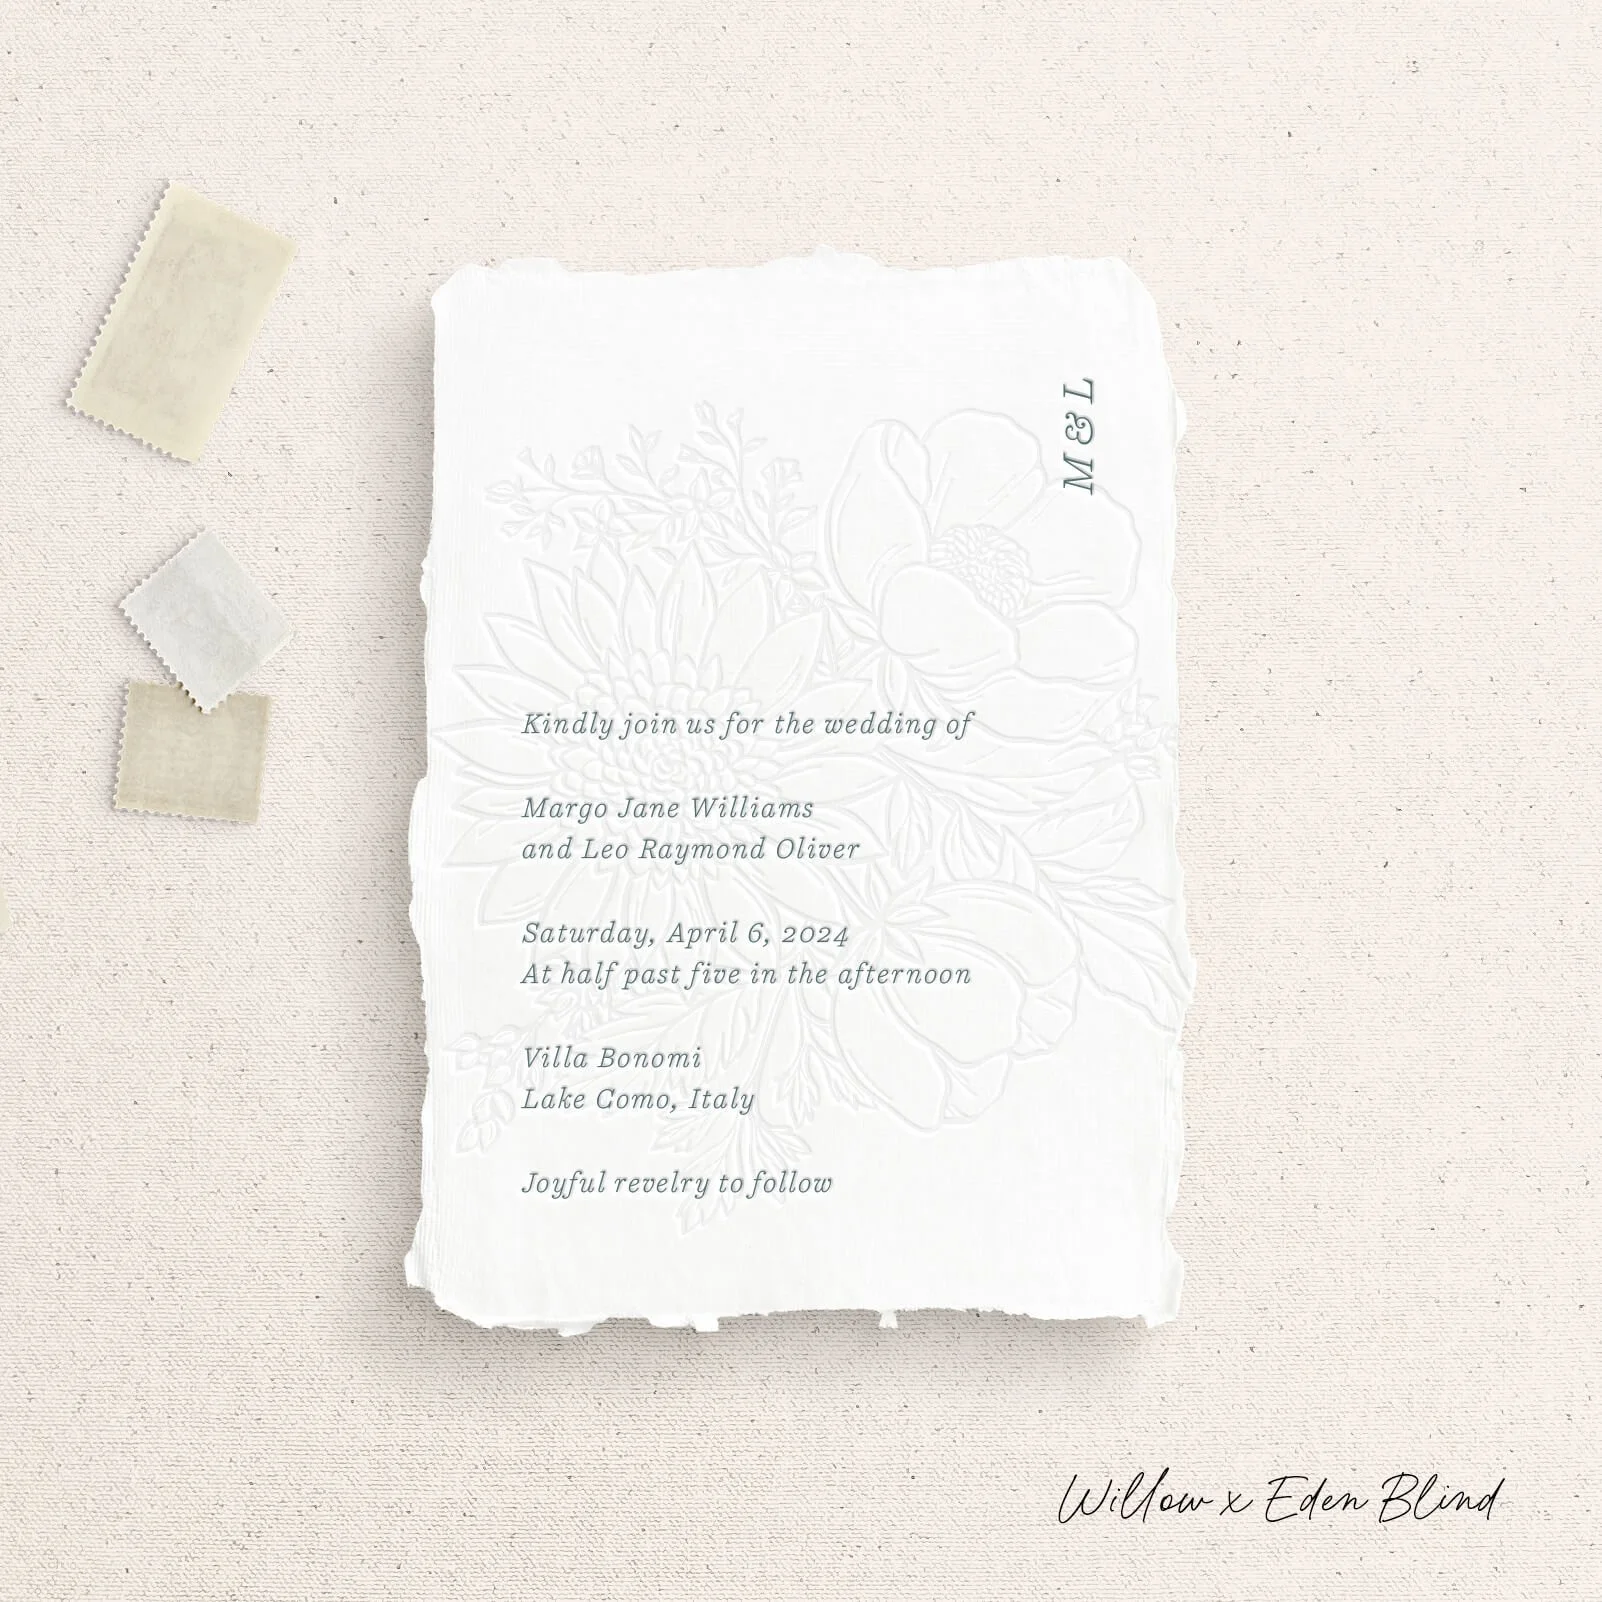 M & L
Kindly join us for the wedding of
Margo Jane Williams
and Leo Raymond Oliver
Saturday, April 6, 2024
At half past five in the afternoon
Villa Bonomi
Lake Como, Italy
Joyful revelry to follow
Willow x Eden Blind